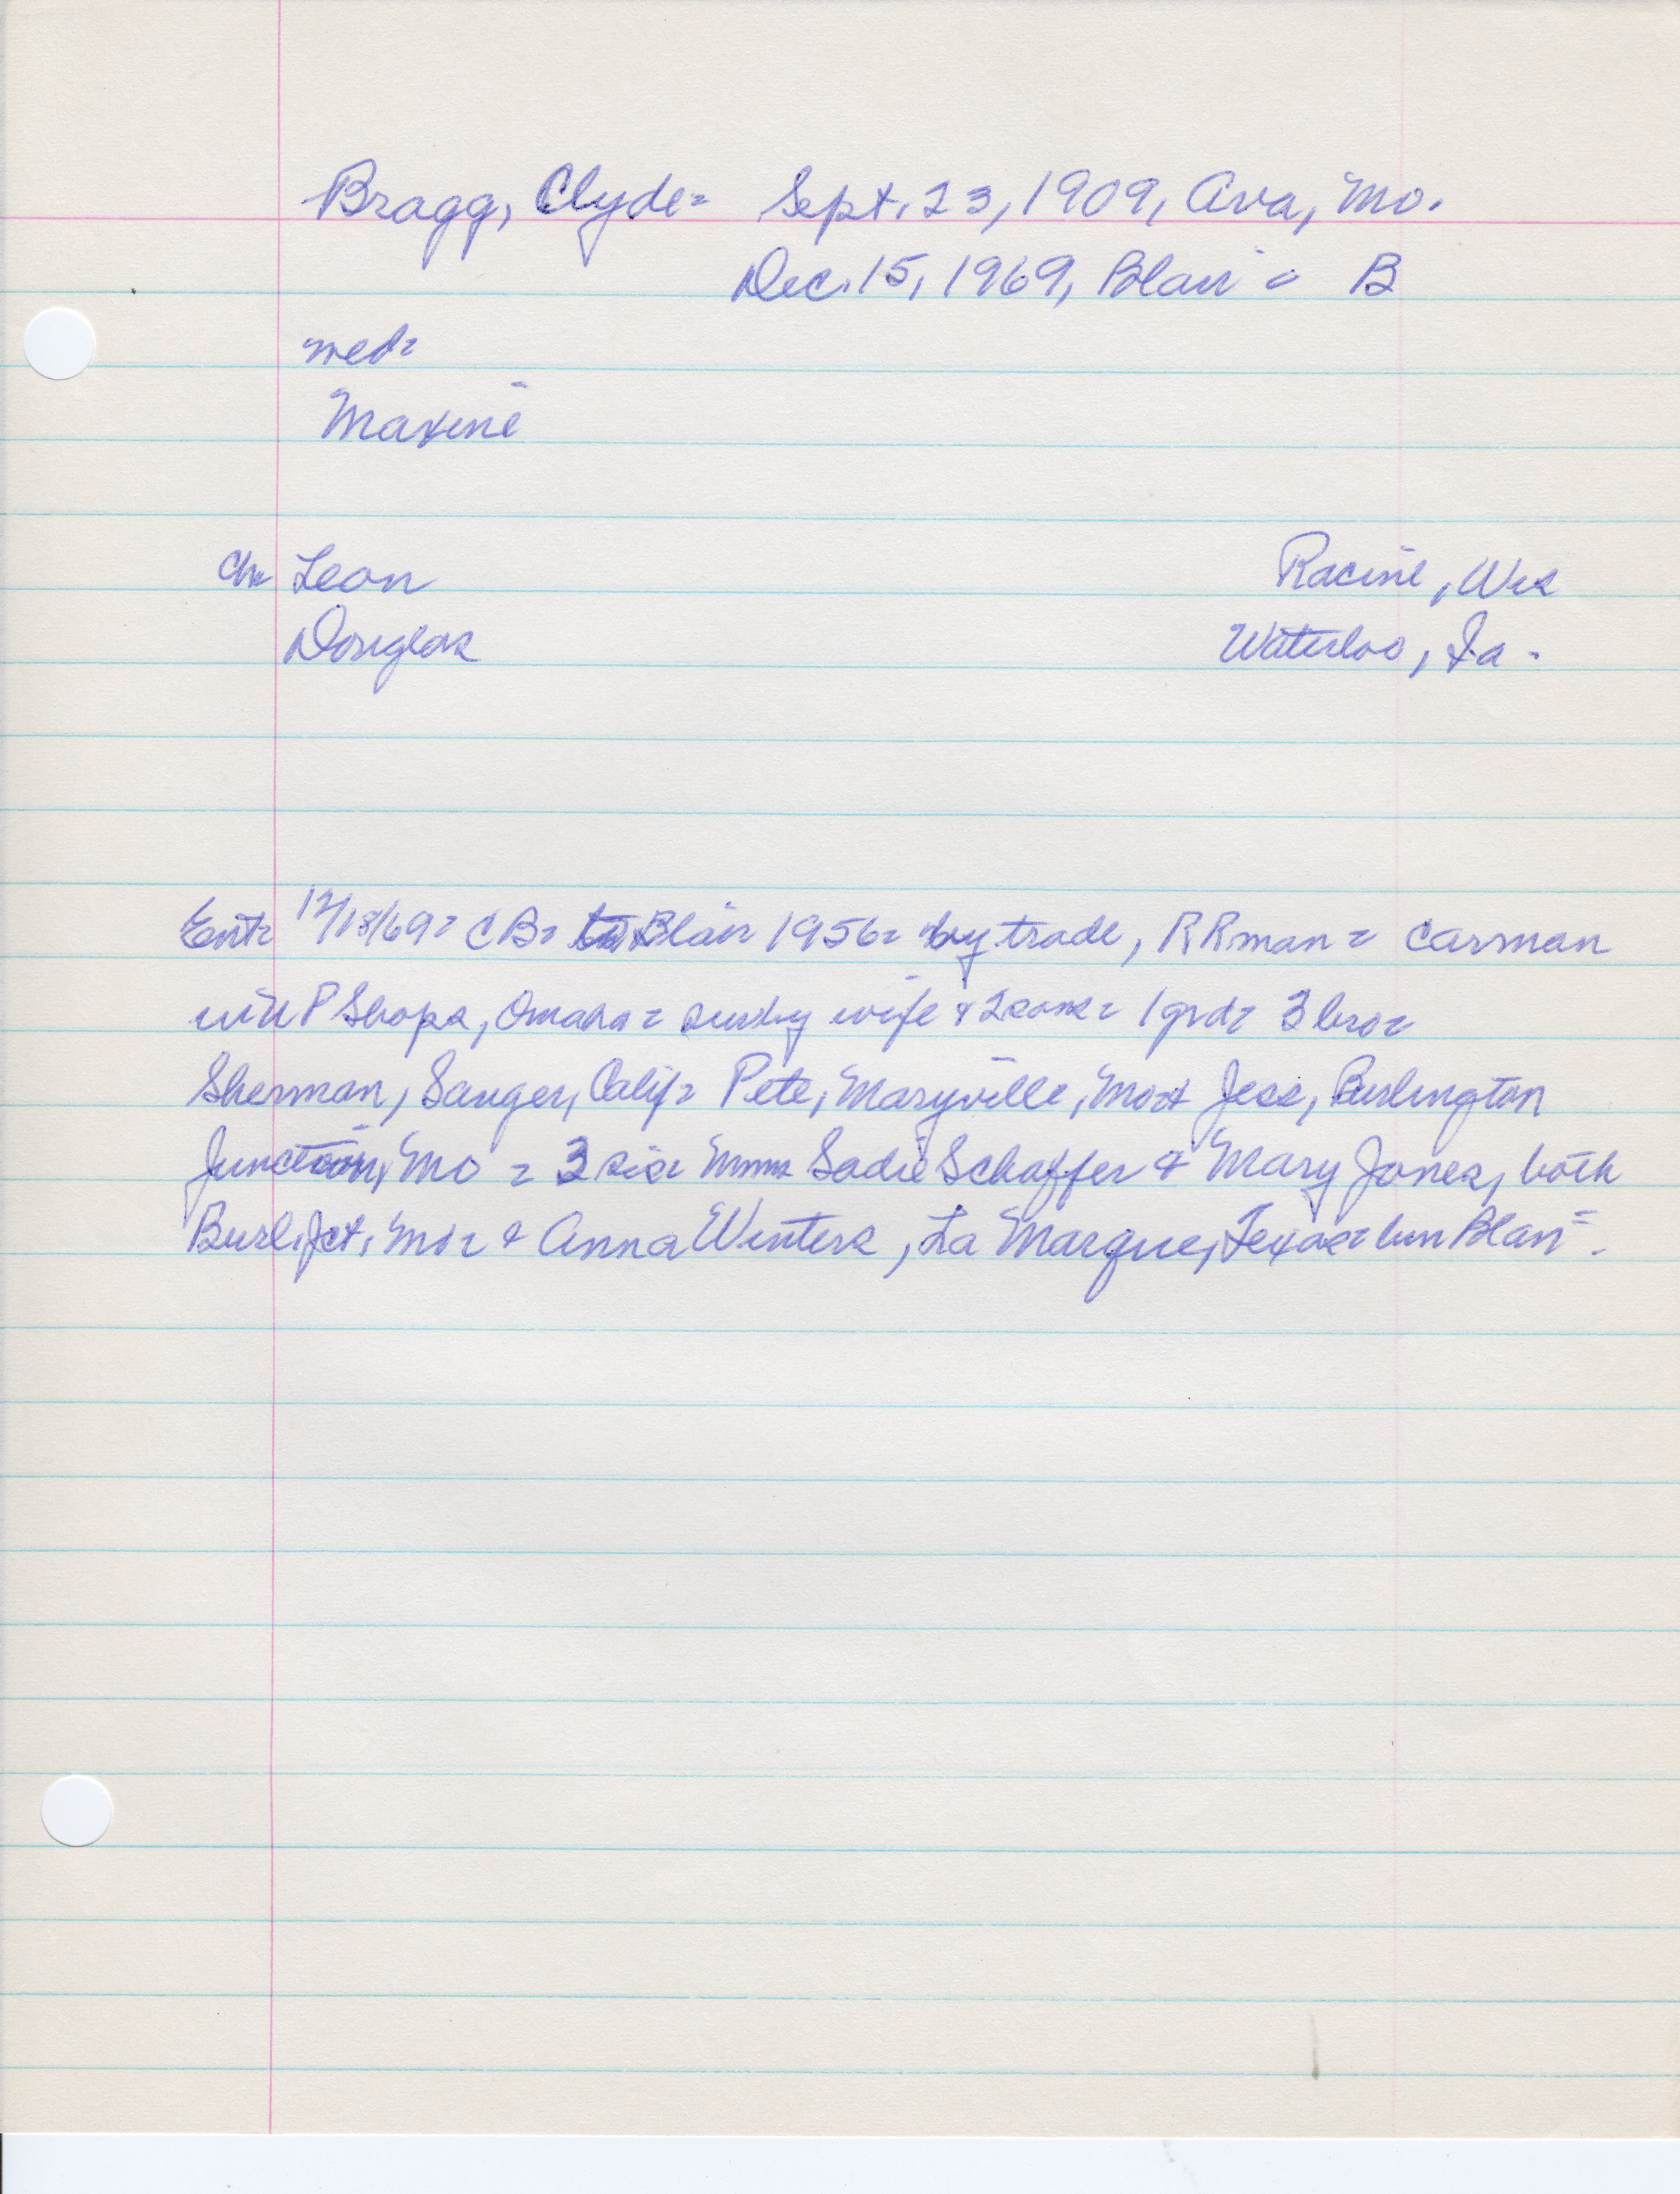 Bragg, Clyde= Sept. 23, 1909, Ava, Mo.
Dec. 15, 1969, Blair = B
med=
Maxine
Ch= Leon Racine, Wis
Douglas Waterloo, Ia.
Ent= 12/18/69= CB= Blair 1956= by trade, RRman = carman
w UP Shops, Omaha = surv by wife & 2 sons= 1 grd= 3 bro=
Sherman, Sanger, Calif= Pete, Maryville, Mo & Jess, Burlington
Junction, Mo = 3 sis= Mmes Sadie Schaffer & Mary Jones, both
Burl. Jct, Mo= & Anna Winters, La Marque, Texas= bur Blair=.